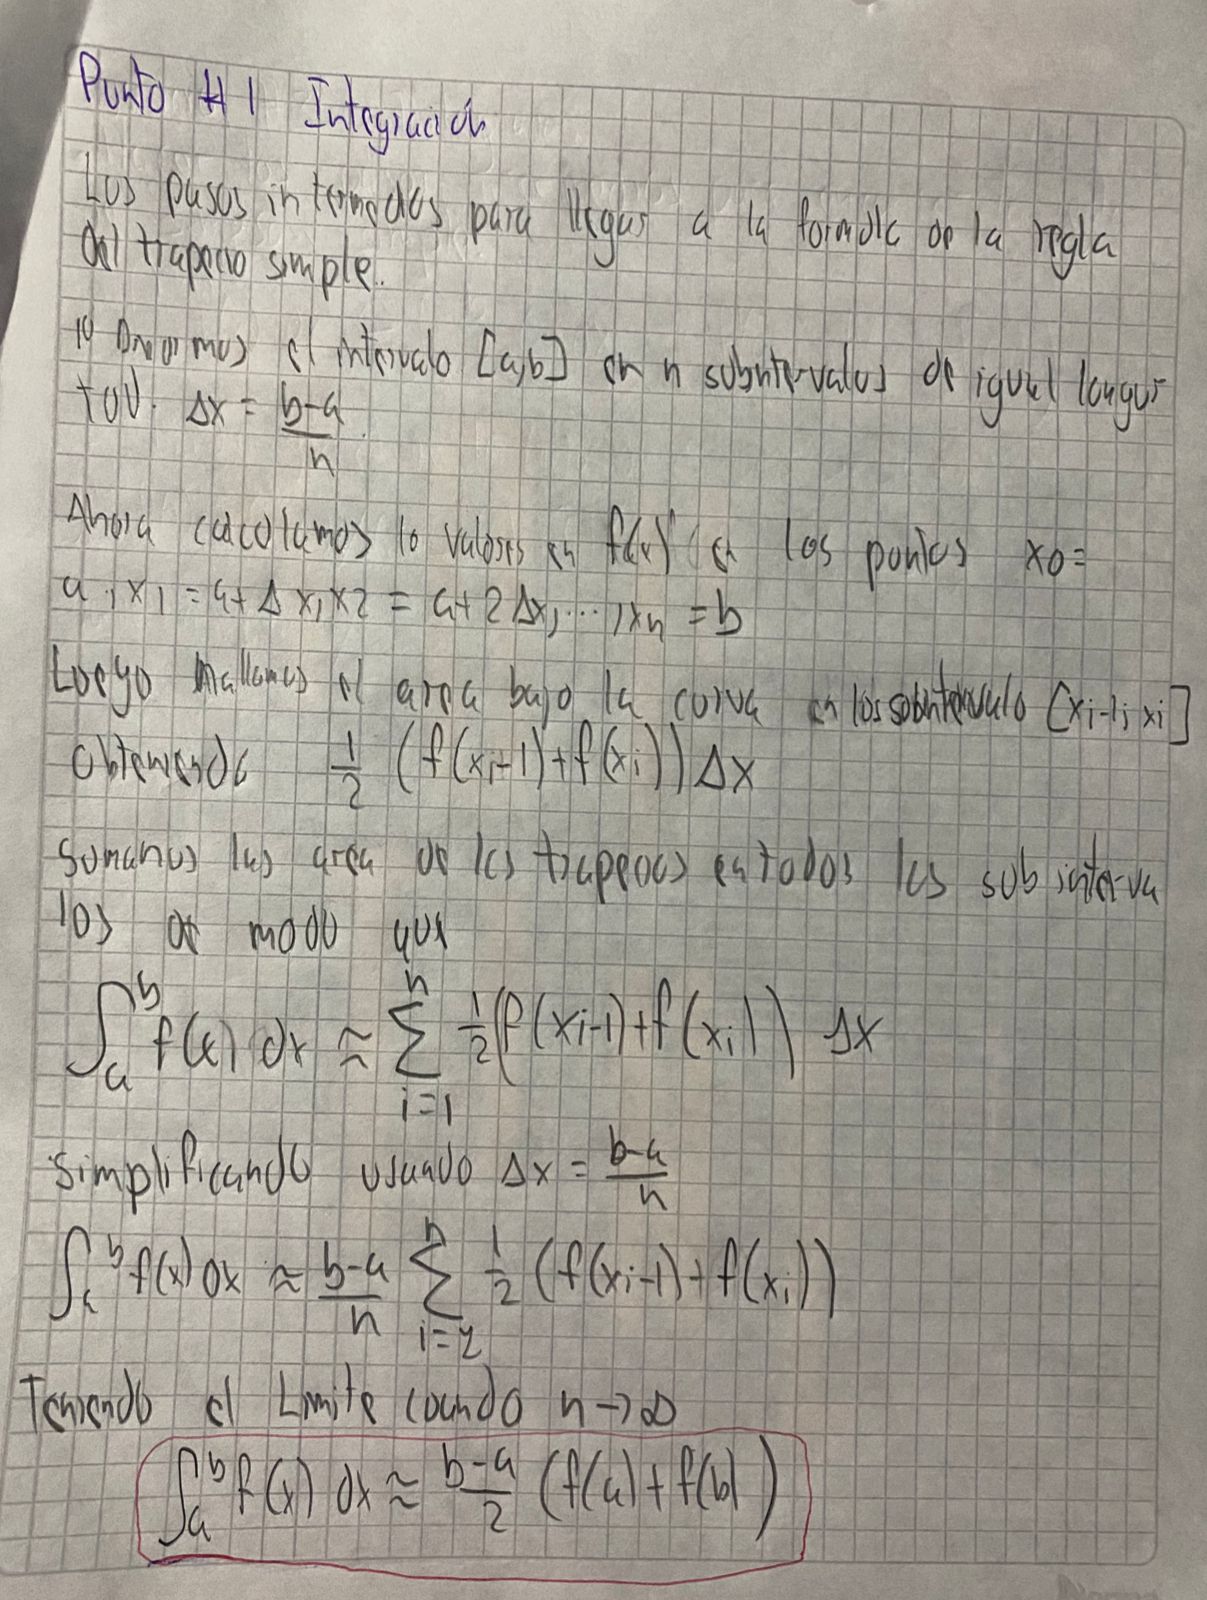 Punto #1 Integración
Los pasos intermedios para llegar a la formula de la regla
del trapecio simple.
1) Dividimos el intervalo [a,b] en n subintervalos de igual longui
tud. Δx = b-a/n
Ahora calculamos lo valores en f(x) en los puntos x0=
a, x1 = a+Δx, x2 = a+2Δx, ..., xn = b
Luego hallamos el area bajo la curva en los subintervalo [xi-1, xi]
obteniendo 1/2 (f(xi-1)+f(xi)) Δx
Sumamos las area de los trapecios en todos los sub interva
los de modo que
∫_a^b f(x) dx ≈ Σ_{i=1}^n 1/2 (f(xi-1)+f(xi)) Δx
simplificando usando Δx = b-a/n
∫_a^b f(x) dx ≈ b-a/n Σ^n 1/2 (f(xi-1)+f(xi))
Teniendo el Limite cuando n→∞
∫_a^b f(x) dx ≈ b-a/2 (f(a)+f(b))